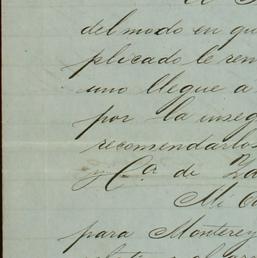 del modo en qu
plicado le rem
uno llegue a
por la inseg
recomendarlos
y Ca. de Za
Mi
para Monterey